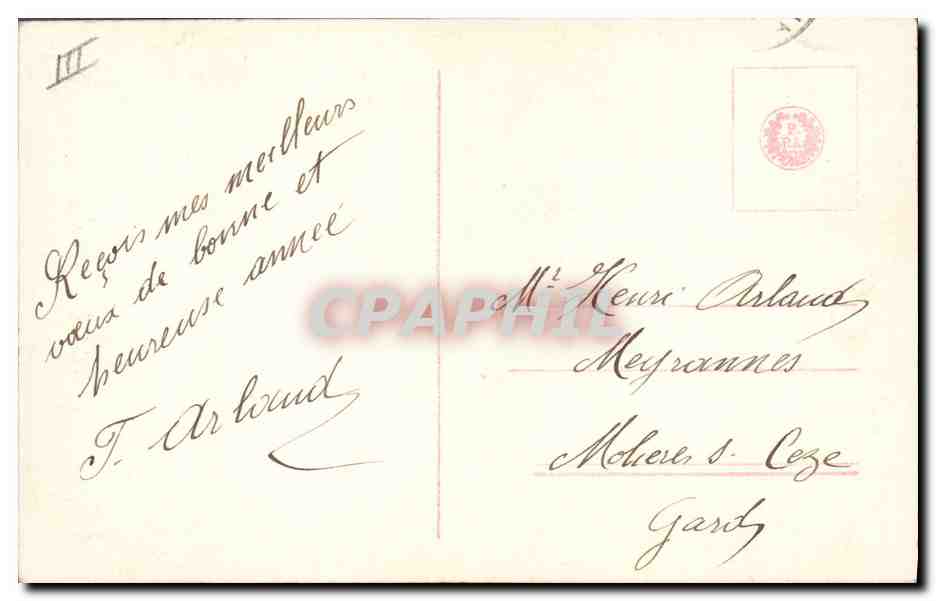 III
Reçois mes meilleurs
vœux de bonne et
heureuse année
T. Arlaud
P.
CPAPHIL
Mr Henri Arlaud
Meyrannes
Molieres s. Ceze
Gard